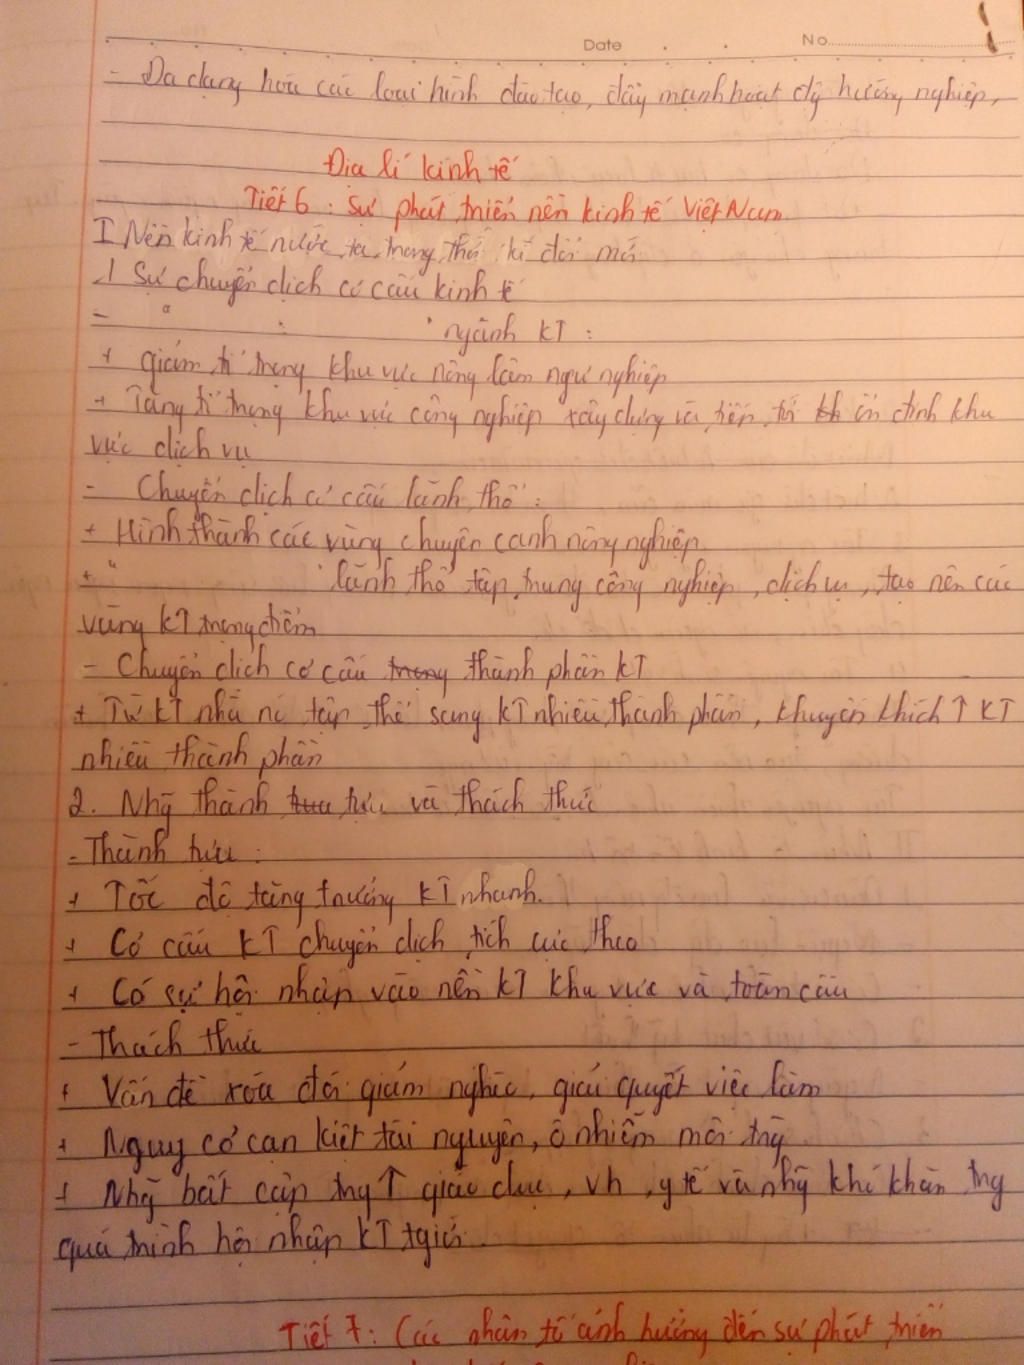 Date No
- Đa dạng hóa các loại hình đào tạo, đẩy mạnh hoạt động hướng nghiệp,
Địa lí kinh tế
Tiết 6 : Sự phát triển nền kinh tế Việt Nam
I Nền kinh tế nước ta trong thời kì đổi mới
1 Sự chuyển dịch cơ cấu kinh tế
- " : ngành KT :
+ Giảm tỉ trọng khu vực nông lâm ngư nghiệp
+ Tăng tỉ trọng khu vực công nghiệp xây dựng và tiến tới ổn định khu
vực dịch vụ
- Chuyển dịch cơ cấu lãnh thổ :
+ Hình thành các vùng chuyên canh nông nghiệp
+ " lãnh thổ tập trung công nghiệp, dịch vụ, tạo nên các
vùng KT trọng điểm
- Chuyển dịch cơ cấu thành phần KT
+ Từ KT nhà nc tập thể sang KT nhiều thành phần, khuyến khích ↑ KT
nhiều thành phần
2. Nhg̃ thành tựu và thách thức
- Thành tựu :
+ Tốc độ tăng trưởng KT nhanh.
+ Cơ cấu KT chuyển dịch tích cực theo
+ Có sự hội nhập vào nền KT khu vực và toàn cầu
- Thách thức
+ Vấn đề xóa đói giảm nghèo, giải quyết việc làm
+ Nguy cơ cạn kiệt tài nguyên, ô nhiễm môi trg̀
+ Nhg̃ bất cập trg ↑ giáo dục, vh, y tế và nhg̃ khó khăn trg
quá trình hội nhập KT tgiới.
Tiết 7 : Các nhân tố ảnh hưởng đến sự phát triển